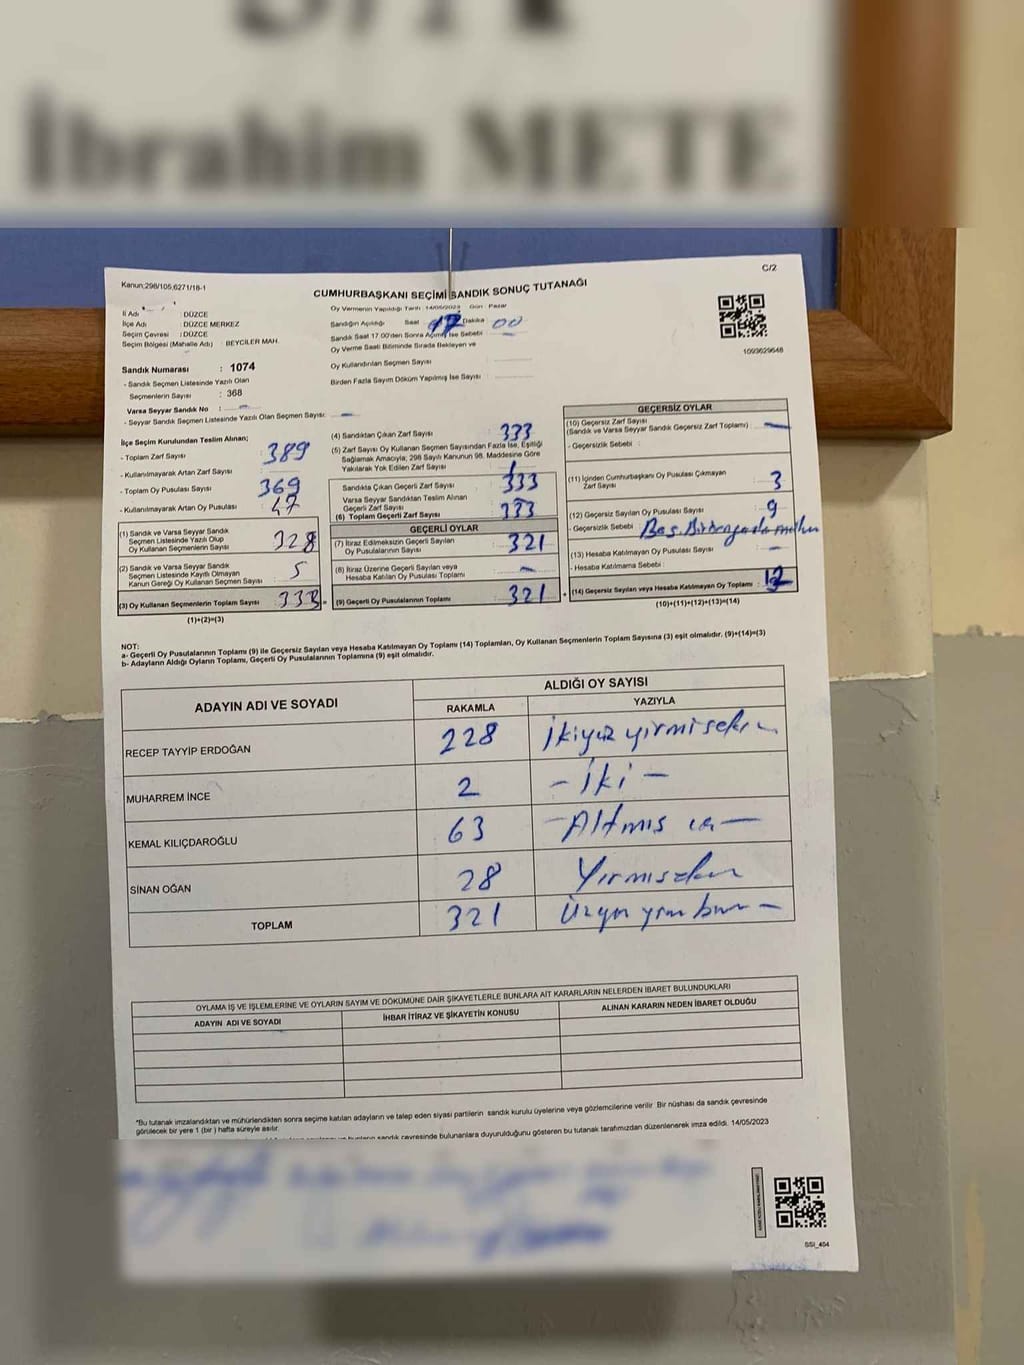 İbrahim METE
C/2
Kanun;298/105,6271/18-1
CUMHURBAŞKANI SEÇİMİ SANDIK SONUÇ TUTANAĞI
İl Adı : DÜZCE
İlçe Adı : DÜZCE MERKEZ
Seçim Çevresi : DÜZCE
Seçim Bölgesi (Mahalle Adı) : BEYCİLER MAH.
Sandık Numarası : 1074
- Sandık Seçmen Listesinde Yazılı Olan
Seçmenlerin Sayısı : 368
Varsa Seyyar Sandık No : -
- Seyyar Sandık Seçmen Listesinde Yazılı Olan Seçmen Sayısı: -
Oy Vermenin Yapıldığı Tarih : 14/05/2023 Gün : Pazar
Sandığın Açıldığı Saat 17 Dakika 00
Sandık Saat 17:00'den Sonra Açılmış İse Sebebi -
Oy Verme Saati Bitiminde Sırada Bekleyen ve
Oy Kullandırılan Seçmen Sayısı :
Birden Fazla Sayım Döküm Yapılmış İse Sayısı :
1093629648
İlçe Seçim Kurulundan Teslim Alınan;
- Toplam Zarf Sayısı 389
- Kullanılmayarak Artan Zarf Sayısı
- Toplam Oy Pusulası Sayısı 369
- Kullanılmayarak Artan Oy Pusulası 47
(1) Sandık ve Varsa Seyyar Sandık
Seçmen Listesinde Yazılı Olup
Oy Kullanan Seçmenlerin Sayısı 328
(2) Sandık ve Varsa Seyyar Sandık
Seçmen Listesinde Kayıtlı Olmayan
Kanun Gereği Oy Kullanan Seçmen Sayısı 5
(3) Oy Kullanan Seçmenlerin Toplam Sayısı 333 =
(1)+(2)=(3)
(4) Sandıktan Çıkan Zarf Sayısı 333
(5) Zarf Sayısı Oy Kullanan Seçmen Sayısından Fazla İse, Eşitliği
Sağlamak Amacıyla; 298 Sayılı Kanunun 98. Maddesine Göre
Yakılarak Yok Edilen Zarf Sayısı
Sandıkta Çıkan Geçerli Zarf Sayısı 333
Varsa Seyyar Sandıktan Teslim Alınan
Geçerli Zarf Sayısı
(6) Toplam Geçerli Zarf Sayısı 333
GEÇERLİ OYLAR
(7) İtiraz Edilmeksizin Geçerli Sayılan
Oy Pusulalarının Sayısı 321
(8) İtiraz Üzerine Geçerli Sayılan veya
Hesaba Katılan Oy Pusulası Toplamı -
(9) Geçerli Oy Pusulalarının Toplamı 321 +
GEÇERSİZ OYLAR
(10) Geçersiz Zarf Sayısı
(Sandık ve Varsa Seyyar Sandık Geçersiz Zarf Toplamı) -
- Geçersizlik Sebebi :
(11) İçinden Cumhurbaşkanı Oy Pusulası Çıkmayan
Zarf Sayısı 3
(12) Geçersiz Sayılan Oy Pusulası Sayısı 9
- Geçersizlik Sebebi :
(13) Hesaba Katılmayan Oy Pusulası Sayısı -
- Hesaba Katılmama Sebebi :
(14) Geçersiz Sayılan veya Hesaba Katılmayan Oy Toplamı 12
(10)+(11)+(12)+(13)=(14)
NOT:
a- Geçerli Oy Pusulalarının Toplamı (9) ile Geçersiz Sayılan veya Hesaba Katılmayan Oy Toplamı (14) Toplamları, Oy Kullanan Seçmenlerin Toplam Sayısına (3) eşit olmalıdır. (9)+(14)=(3)
b- Adayların Aldığı Oyların Toplamı, Geçerli Oy Pusulalarının Toplamına (9) eşit olmalıdır.
ADAYIN ADI VE SOYADI ALDIĞI OY SAYISI
RAKAMLA YAZIYLA
RECEP TAYYİP ERDOĞAN 228 İkiyüz yirmi sekiz
MUHARREM İNCE 2 - İki -
KEMAL KILIÇDAROĞLU 63 - Altmış üç -
SİNAN OĞAN 28 Yirmisekiz
TOPLAM 321 Üçyüz yirmi bir -
OYLAMA İŞ VE İŞLEMLERİNE VE OYLARIN SAYIM VE DÖKÜMÜNE DAİR ŞİKAYETLERLE BUNLARA AİT KARARLARIN NELERDEN İBARET BULUNDUKLARI
ADAYIN ADI VE SOYADI İHBAR İTİRAZ VE ŞİKAYETİN KONUSU ALINAN KARARIN NEDEN İBARET OLDUĞU
*Bu tutanak imzalandıktan ve mühürlendikten sonra seçime katılan adayların ve talep eden siyasi partilerin sandık kurulu üyelerine veya gözlemcilerine verilir. Bir nüshası da sandık çevresinde
görülecek bir yere 1 (bir) hafta süreyle asılır.
sandık çevresinde bulunanlara duyurulduğunu gösteren bu tutanak tarafımızdan düzenlenerek imza edildi. 14/05/2023
SSI_404